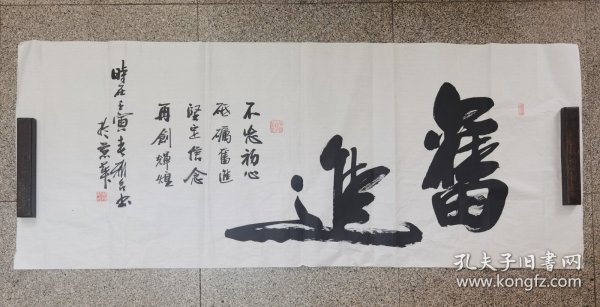 奮進
不忘初心
砥礪奮進
堅定信念
再創輝煌
時在壬寅春月
於京華
孔夫子旧书网
www.kongfz.com